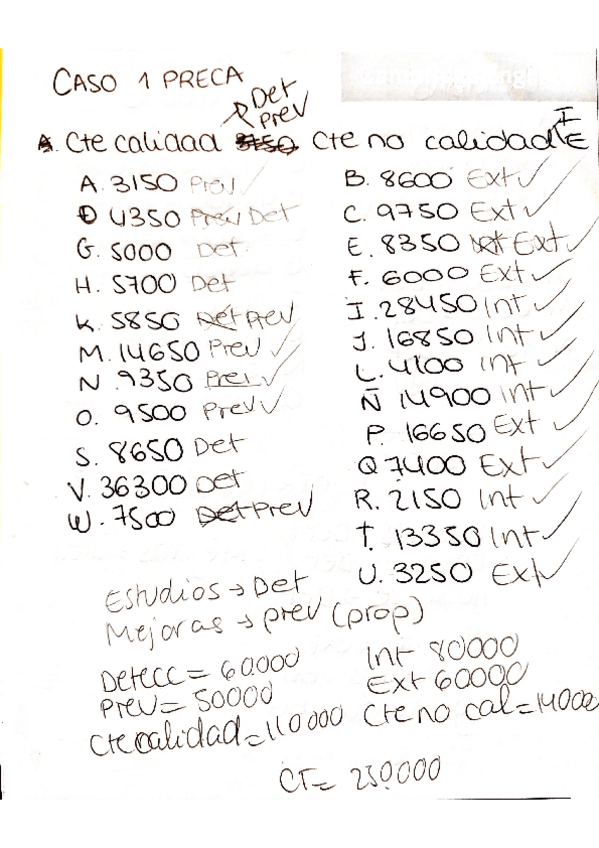 CASO 1 PRECA
Det
Prev
Cte calidad 3150 Cte no calidad I
E
A. 3150 Prev ✓
D 4350 Prev Det
G. 5000 Det
H. 5700 Det
K. 5850 Det Prev
M. 14650 Prev ✓
N. 9350 Prev ✓
O. 9500 Prev ✓
S. 8650 Det
V. 36300 Det
W. 7500 Det Prev
B. 8600 Ext ✓
C. 9750 Ext ✓
E. 8350 Det Ext ✓
F. 6000 Ext ✓
I. 28450 Int ✓
J. 16850 Int ✓
L. 4100 Int ✓
Ñ 14900 Int ✓
P. 16650 Ext ✓
Q 7400 Ext ✓
R. 2150 Int ✓
T. 13350 Int ✓
U. 3250 Ext ✓
Estudios → Det
Mejoras → prev (prop)
Detecc = 60.000
Prev = 50000
Cte calidad = 110000
Int 80000
Ext 60000
Cte no cal = 140000
CT = 250.000